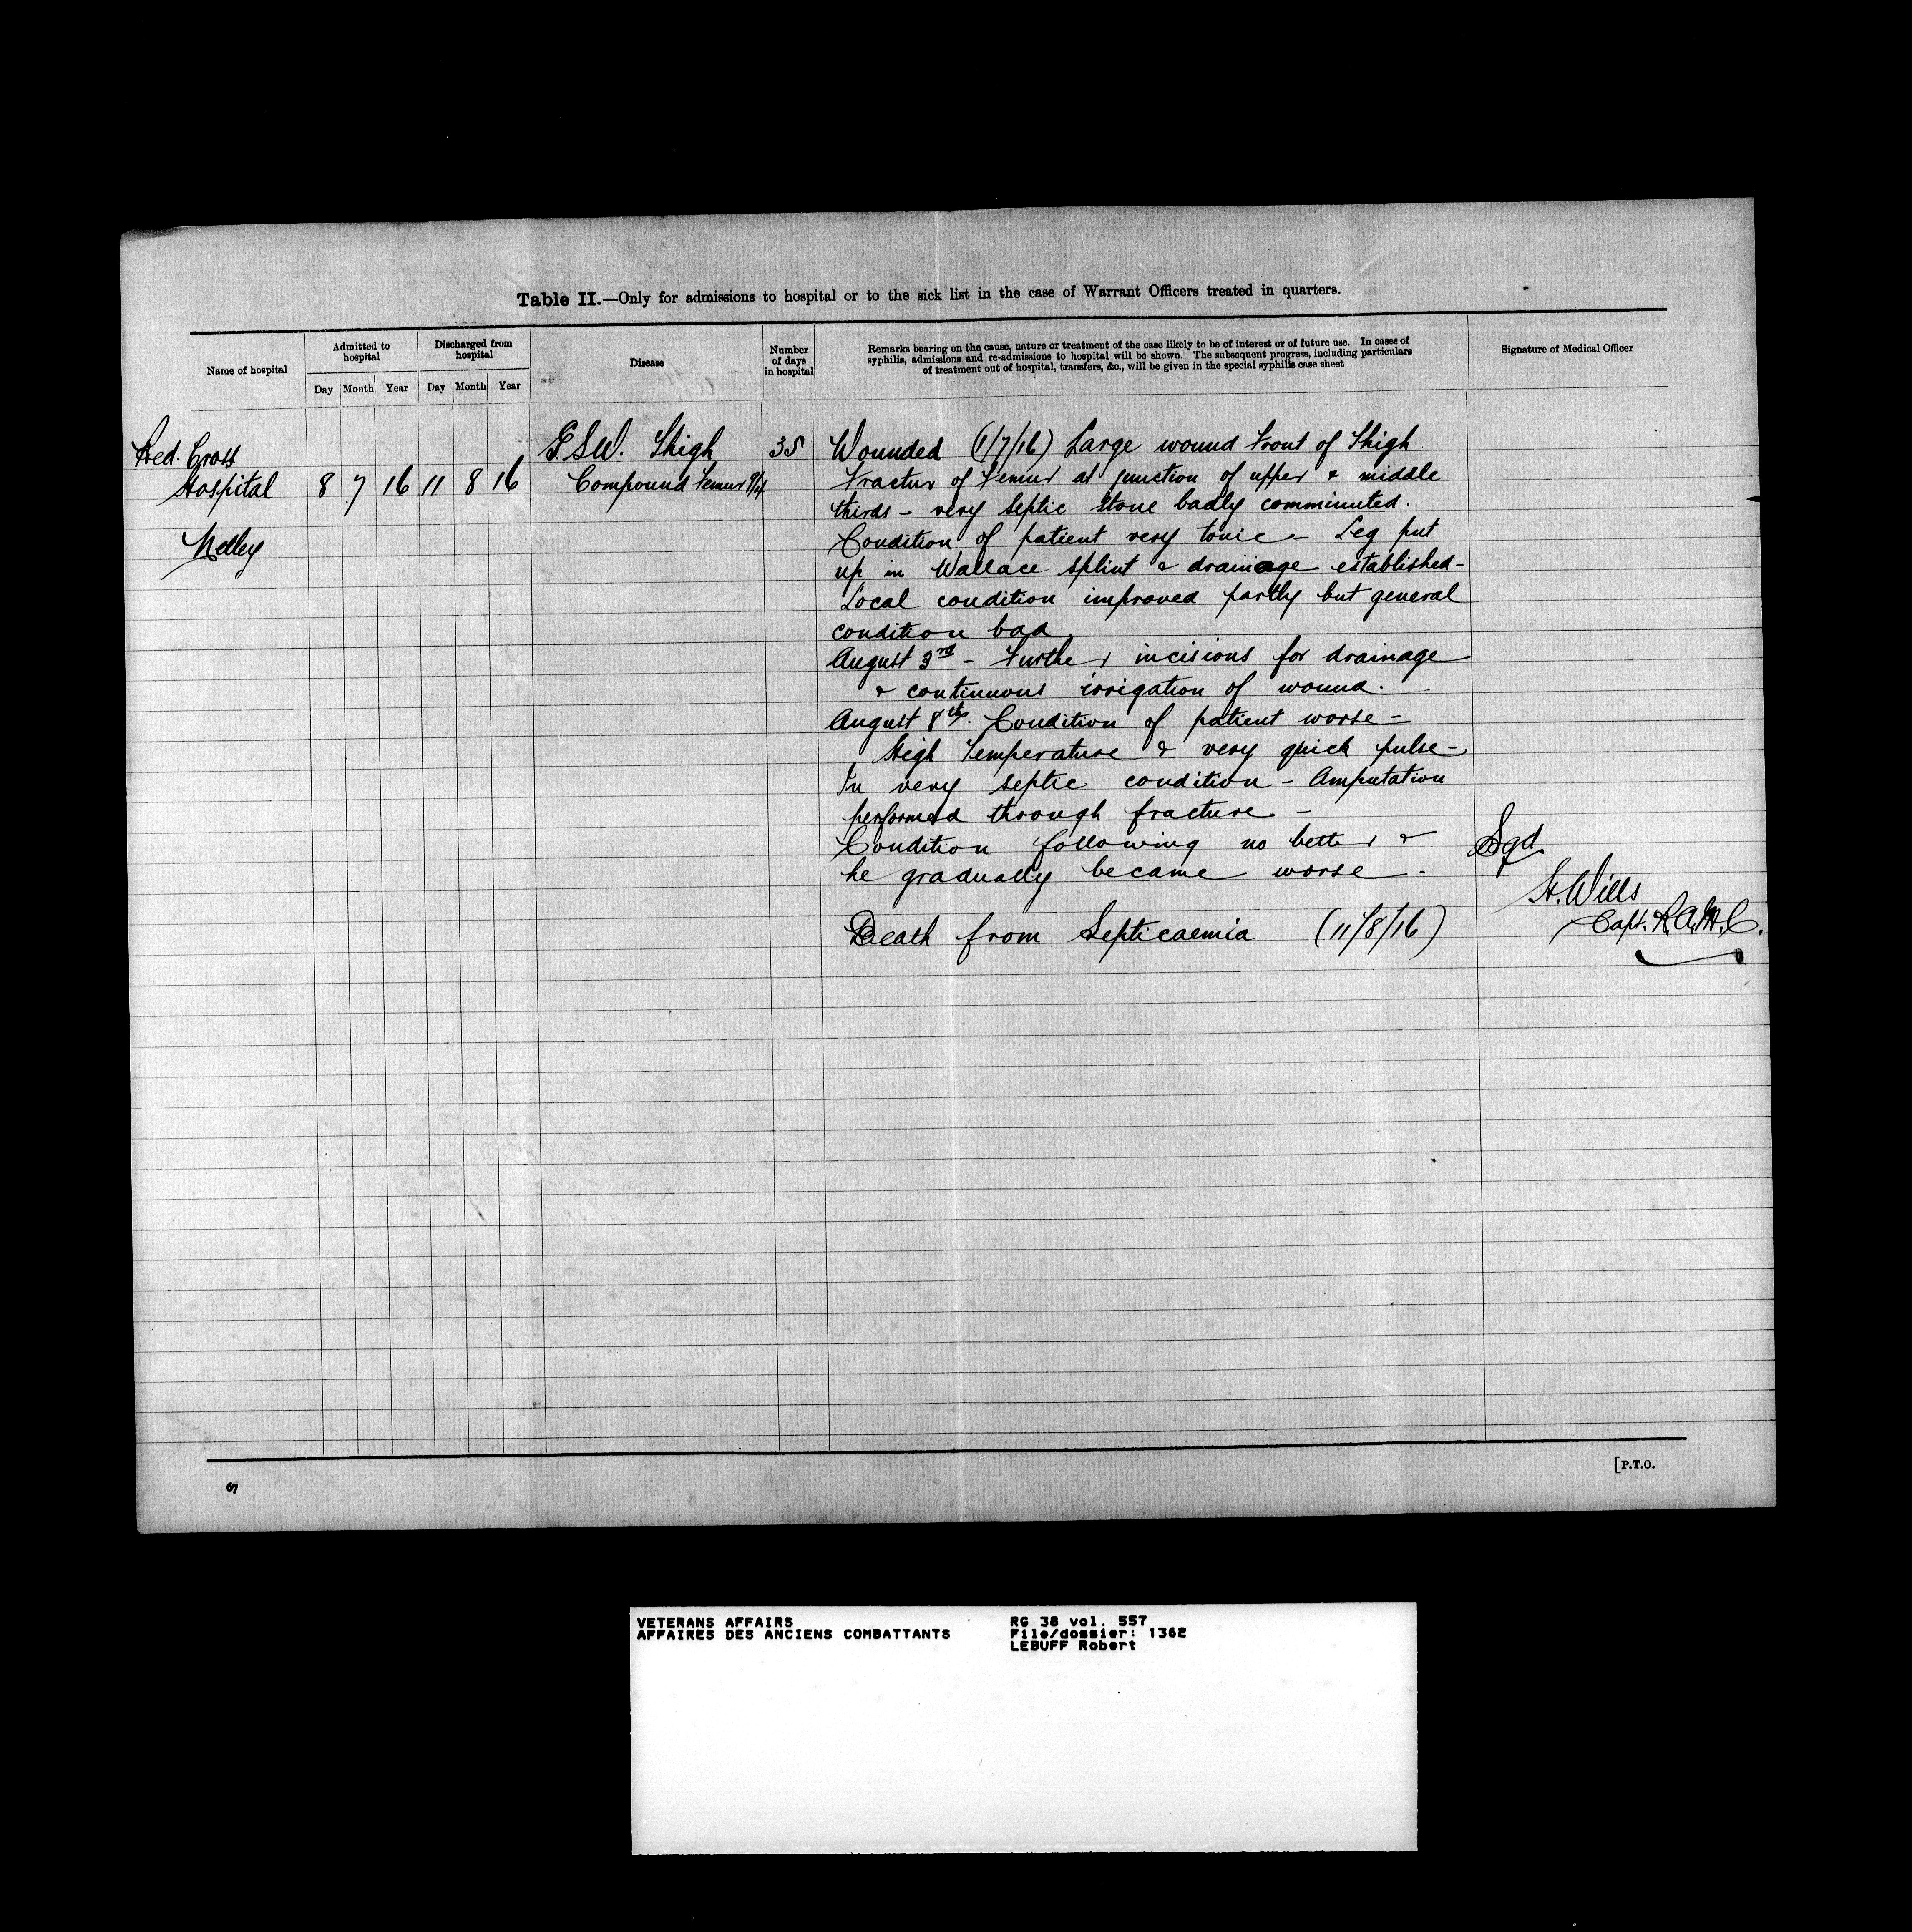 Table II.—Only for admissions to hospital or to the sick list in the case of Warrant Officers treated in quarters.
Name of hospital
Admitted to
hospital
Day Month Year
Discharged from
hospital
Day Month Year
Disease
Number
of days
in hospital
Remarks bearing on the cause, nature or treatment of the case likely to be of interest or of future use. In cases of
syphilis, admissions and re-admissions to hospital will be shown. The subsequent progress, including particulars
of treatment out of hospital, transfers, &c., will be given in the special syphilis case sheet
Signature of Medical Officer
Red. Cross
Hospital
Netley
8 7 16 11 8 16
G.S.W. Thigh
Compound Femur
35
Wounded (1/7/16) Large wound Front of Thigh
Fracture of Femur at junction of upper & middle
thirds – very septic bone badly comminuted.
Condition of patient very toxic – Leg put
up in Wallace splint & drainage established –
Local condition improved partly but general
condition bad.
August 3rd – Further incisions for drainage
& continuous irrigation of wound.
August 8th. Condition of patient worse –
High Temperature & very quick pulse –
In very septic condition – Amputation
performed through fracture –
Condition following no better &
he gradually became worse.
Death from Septicaemia (11/8/16)
Sgd.
H. Wills
Capt. R.A.M.C.
[P.T.O.
VETERANS AFFAIRS
AFFAIRES DES ANCIENS COMBATTANTS
RG 38 vol. 557
File/dossier: 1362
LEBUFF Robert